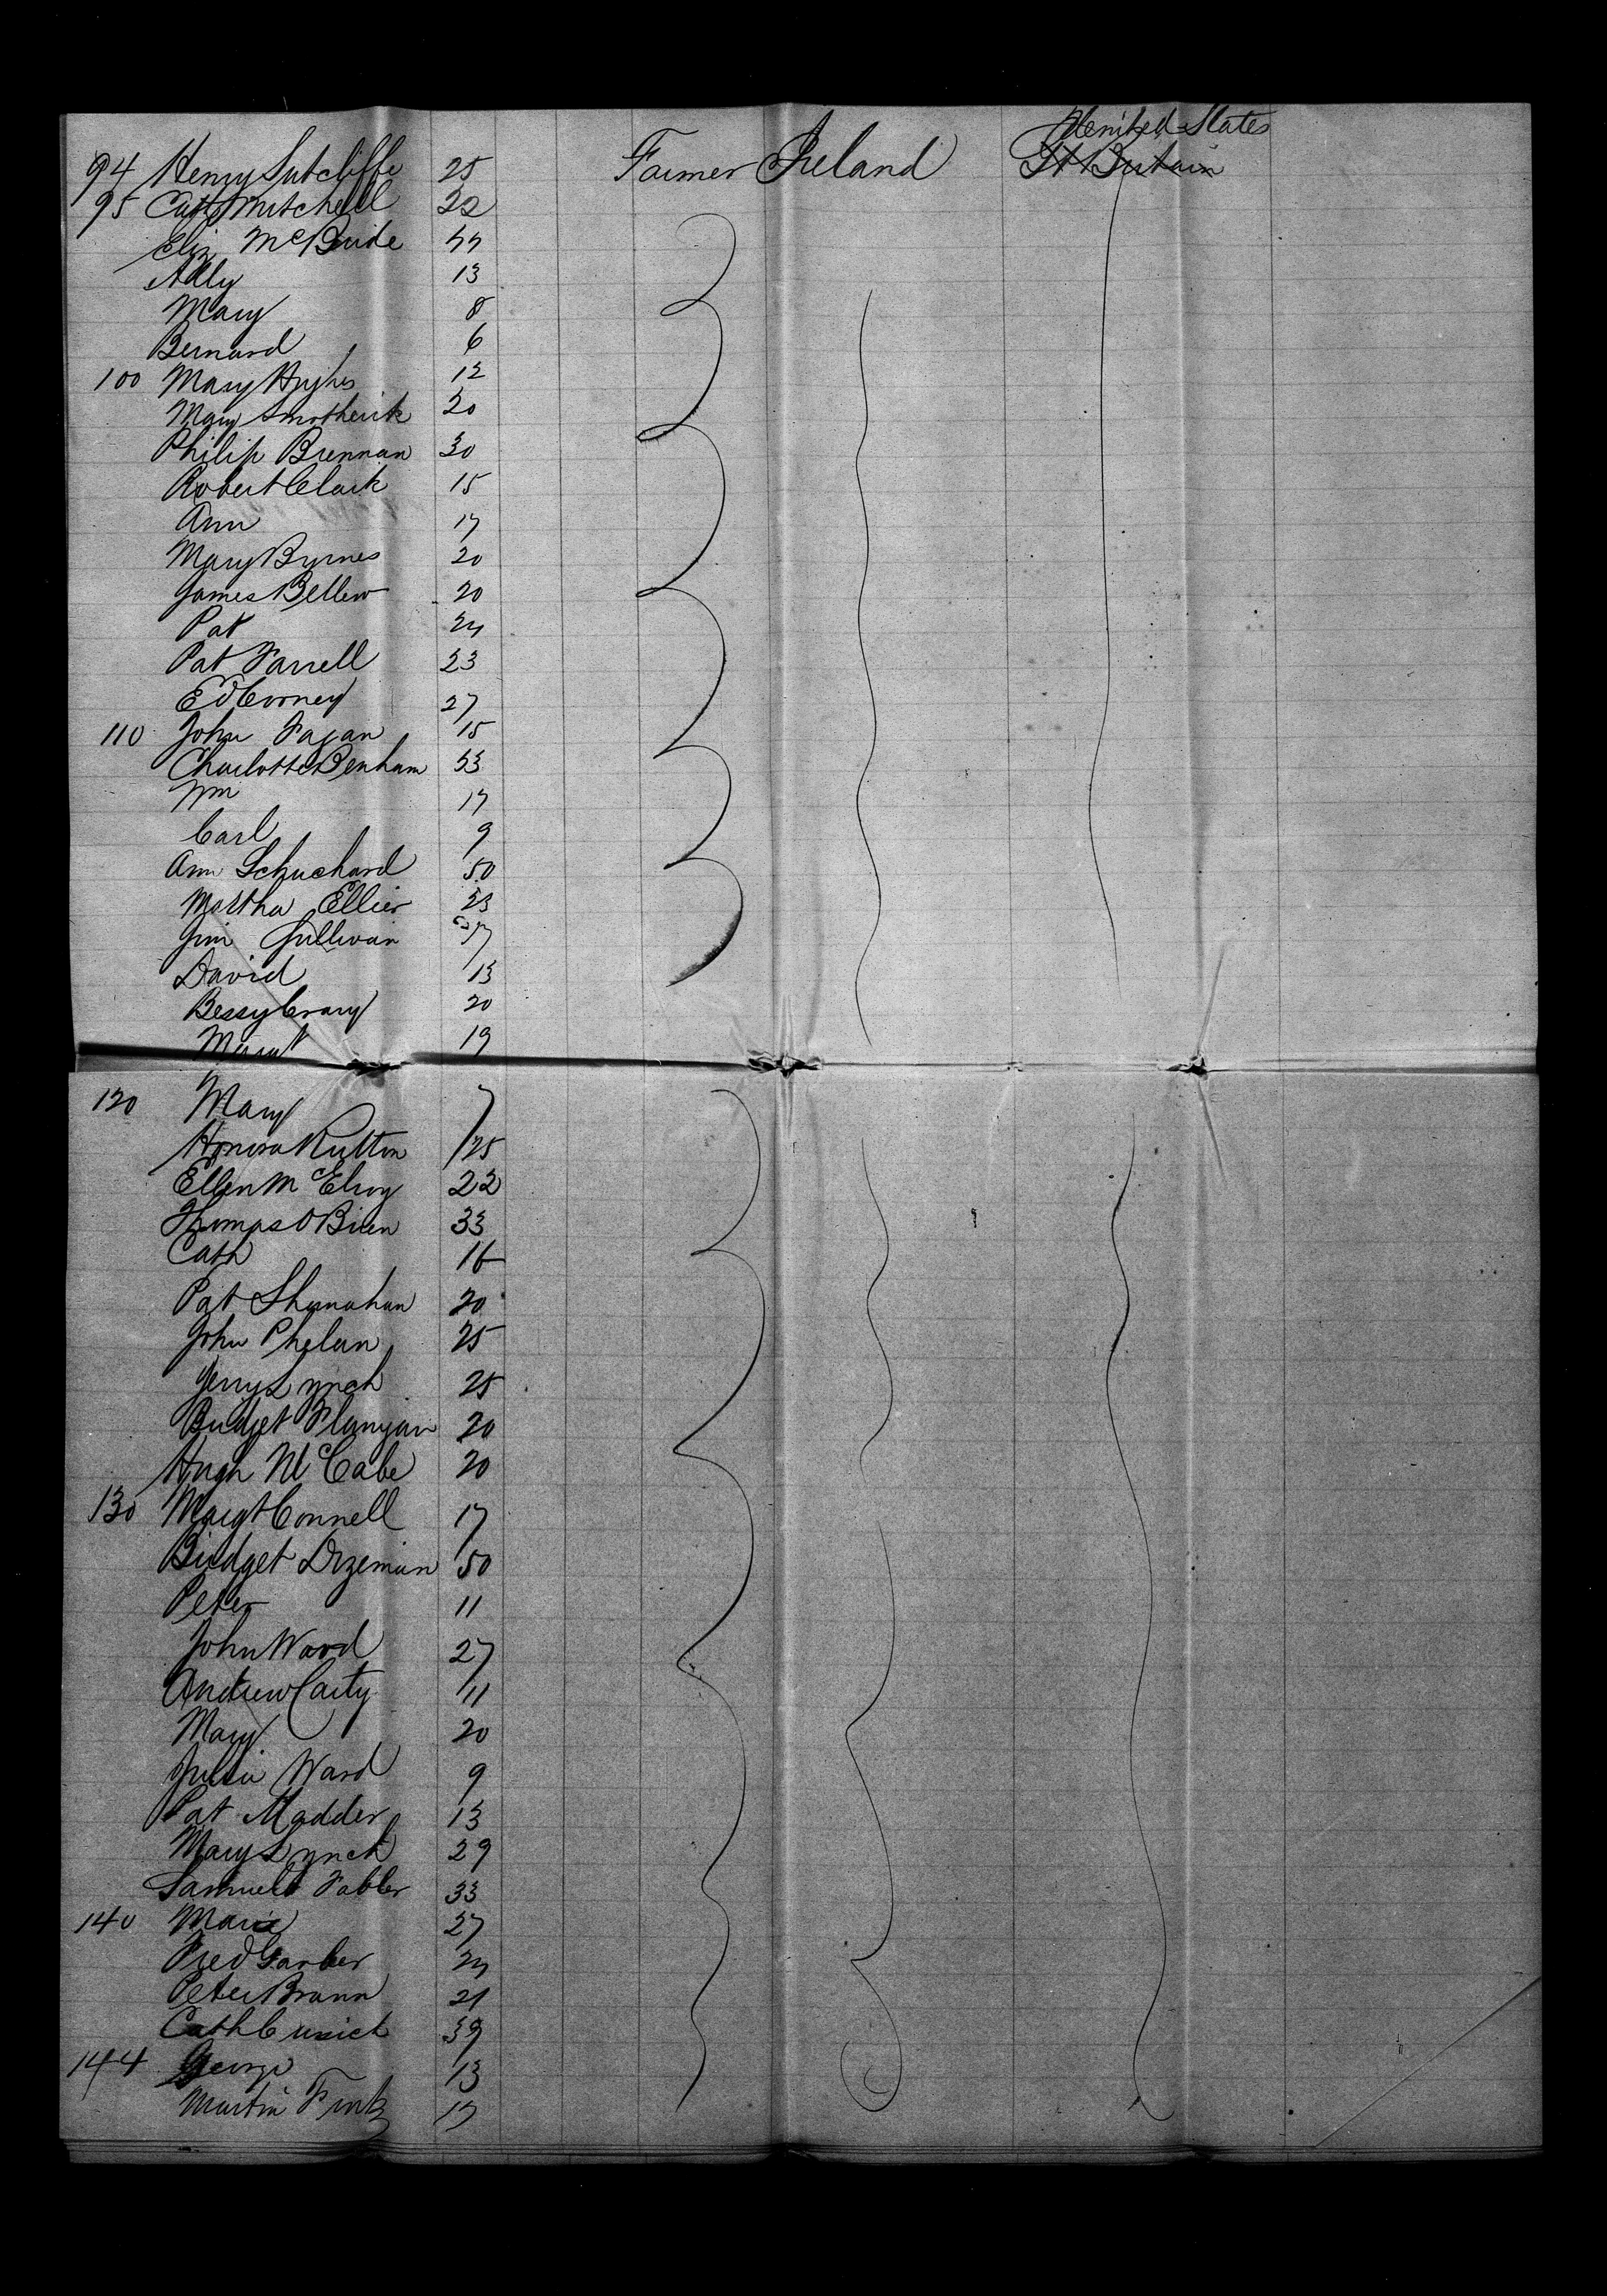 United States
94 Henry Sutcliffe 25 Farmer Ireland Gt Britain
95 Cath Mitchell 22
Eliz McBride 44
Ally 13
Mary 8
Bernard 6
100 Mary Hughes 12
Mary 20
Philip Brennan 30
Robert Clark 15
Ann 17
Mary Byrnes 20
James Bellew 20
Pat 24
Pat Farrell 23
Ed Corney 27
110 John Fagan 15
Charlotte Denham 53
Wm 17
Carl 9
Ann Schuchard 50
Martha Ellier 23
Jim Sullivan
David 13
Bessy Crary 20
Margt 19
120 Mary 7
Honora Rutton 25
Ellen McElroy 22
Thomas OBrien 33
Cath 16
Pat Shanahan 20
John Phelan 25
Jerry Lynch 25
Bridget Flanigan 20
Hugh McCabe 20
130 Margt Connell 17
Bridget 50
Peter 11
John Ward 27
Andrew Carty 11
Mary 20
Julia Ward 9
Pat Madder 13
Mary Lynch 29
Samuel Fabler 33
140 Marie 27
Fred Garber 24
Peter Brann 21
Cath 39
144 George 13
Martin Fink 17